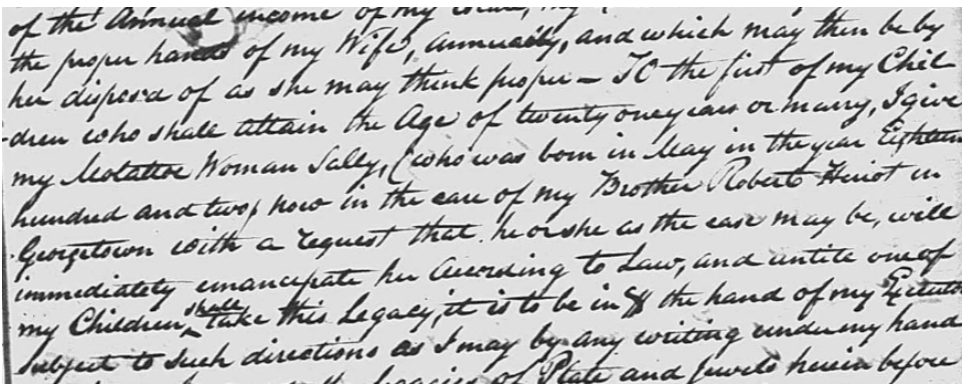 of the Annual income of my
the proper hands of my Wife, annually, and which may then be by
her dispos'd of as she may think proper — TO the first of my Chil
-dren who shall attain the Age of twenty one years or marry, I give
my Molattoe Woman Sally, (who was born in May in the year Eighteen
hundred and two) now in the care of my Brother Robert Heriot in
Georgetown with a request that he or she as the case may be, will
immediately emancipate her According to Law, and until one of
my Children shall take this Legacy, it is to be in the hand of my Executors
subject to such directions as I may by any writing under my hand
Legacies of Plate and Jewels herein before